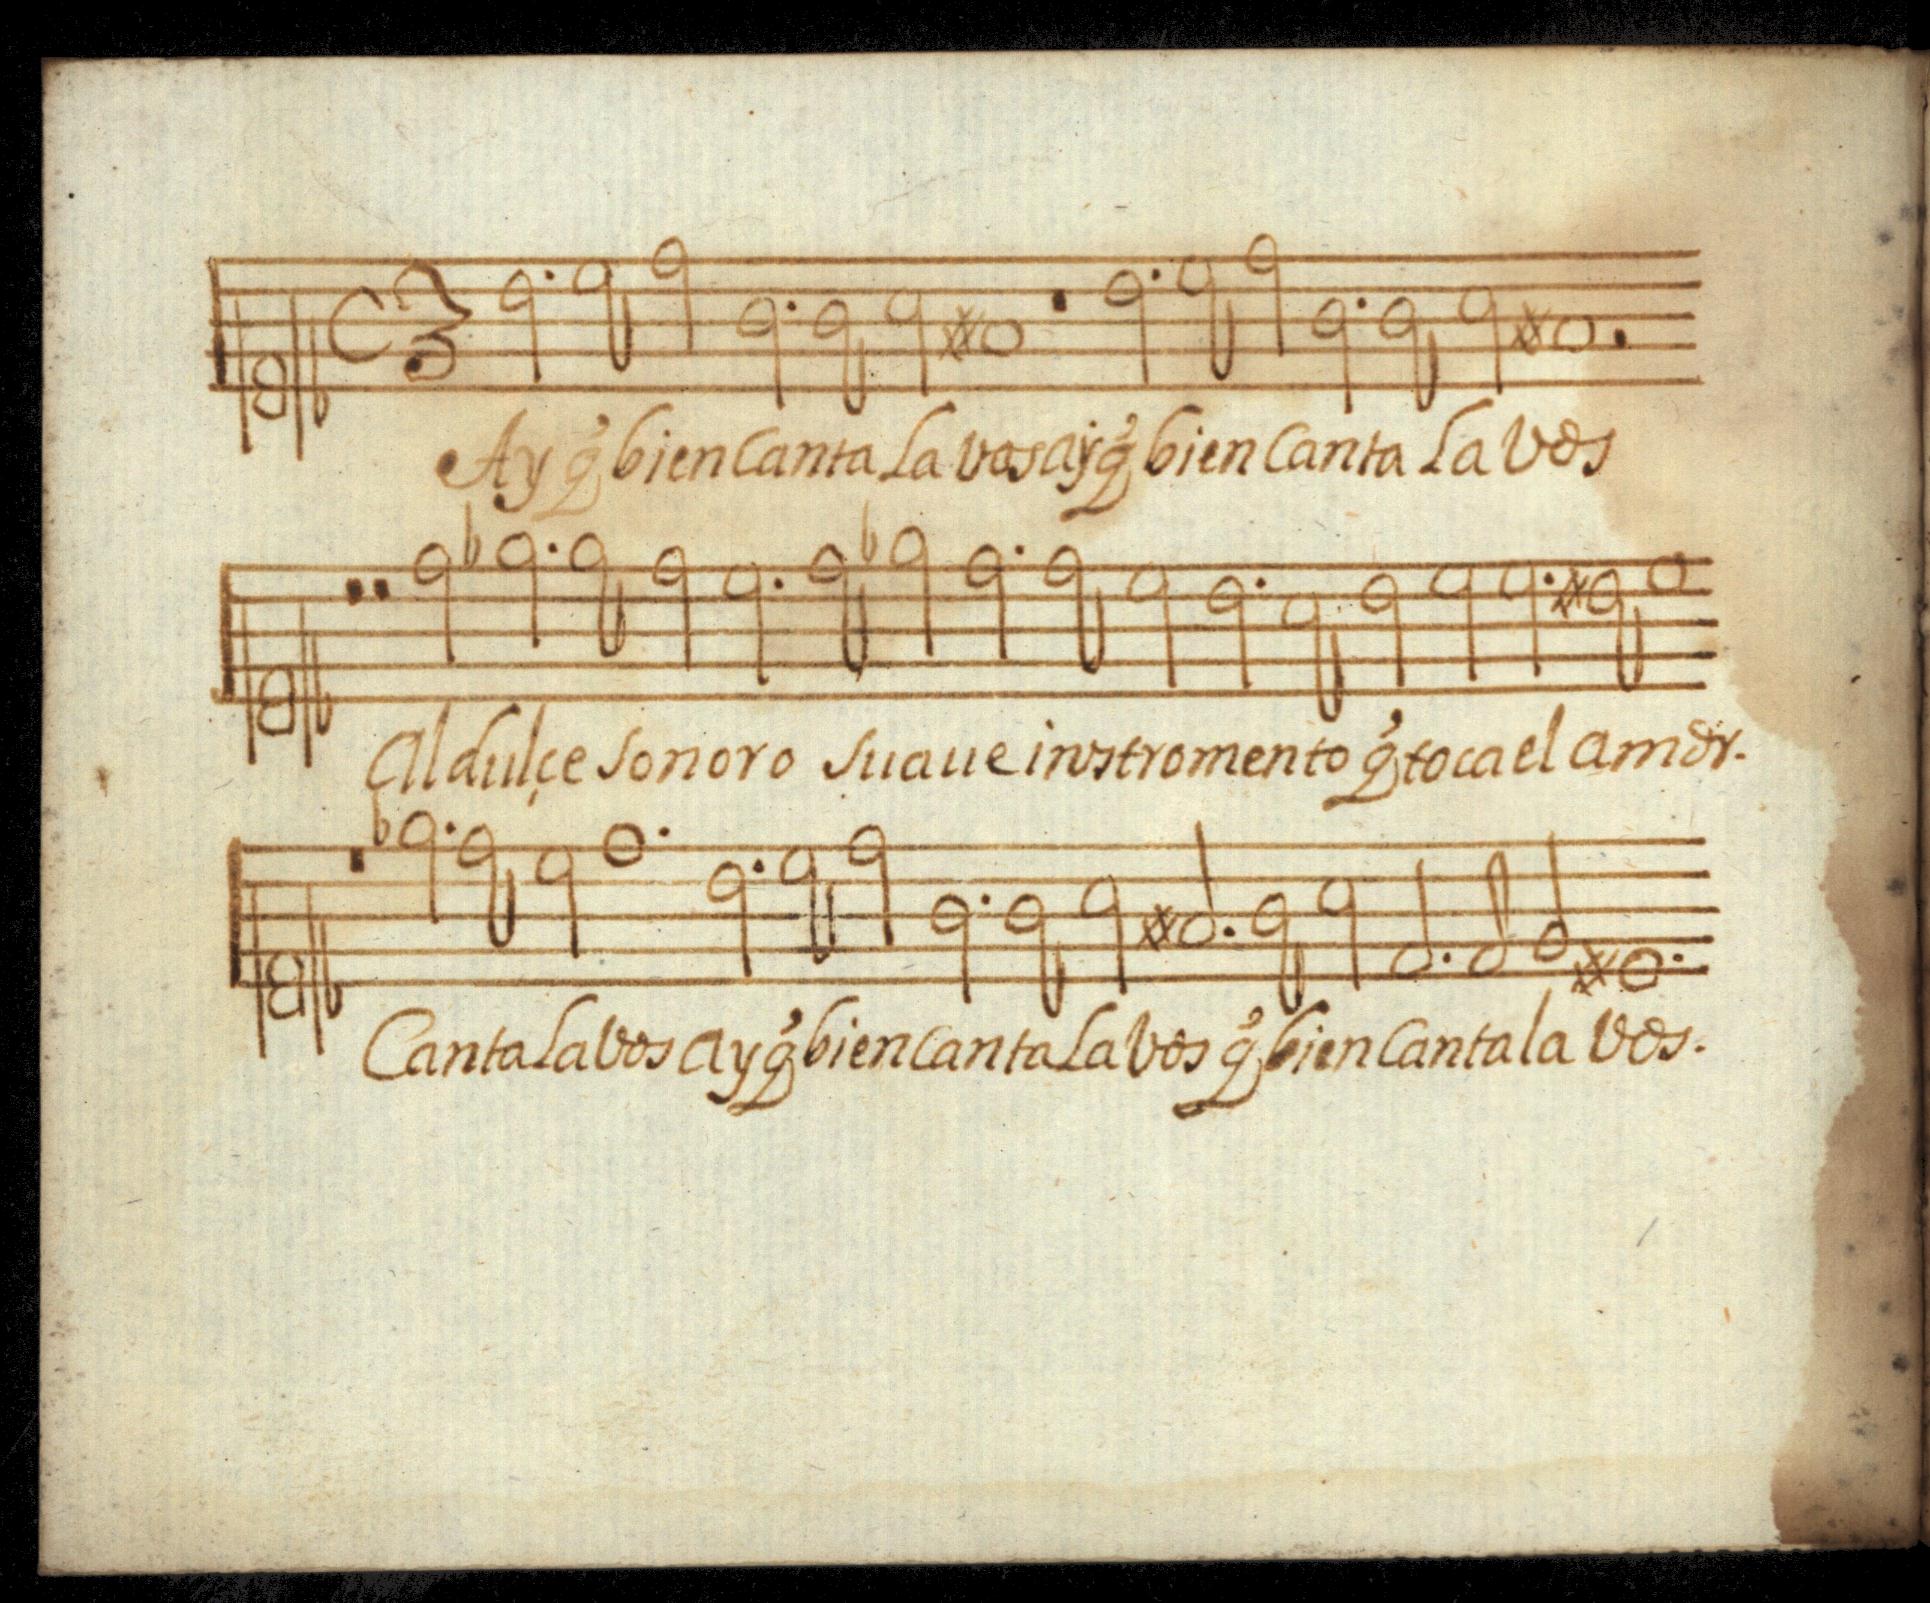 Ay q̃ bien canta la vos ay q̃ bien canta la vos
Al dulçe sonoro suaue instromento q̃ toca el amor.
Canta la vos ay q̃ bien canta la vos q̃ bien canta la vos.